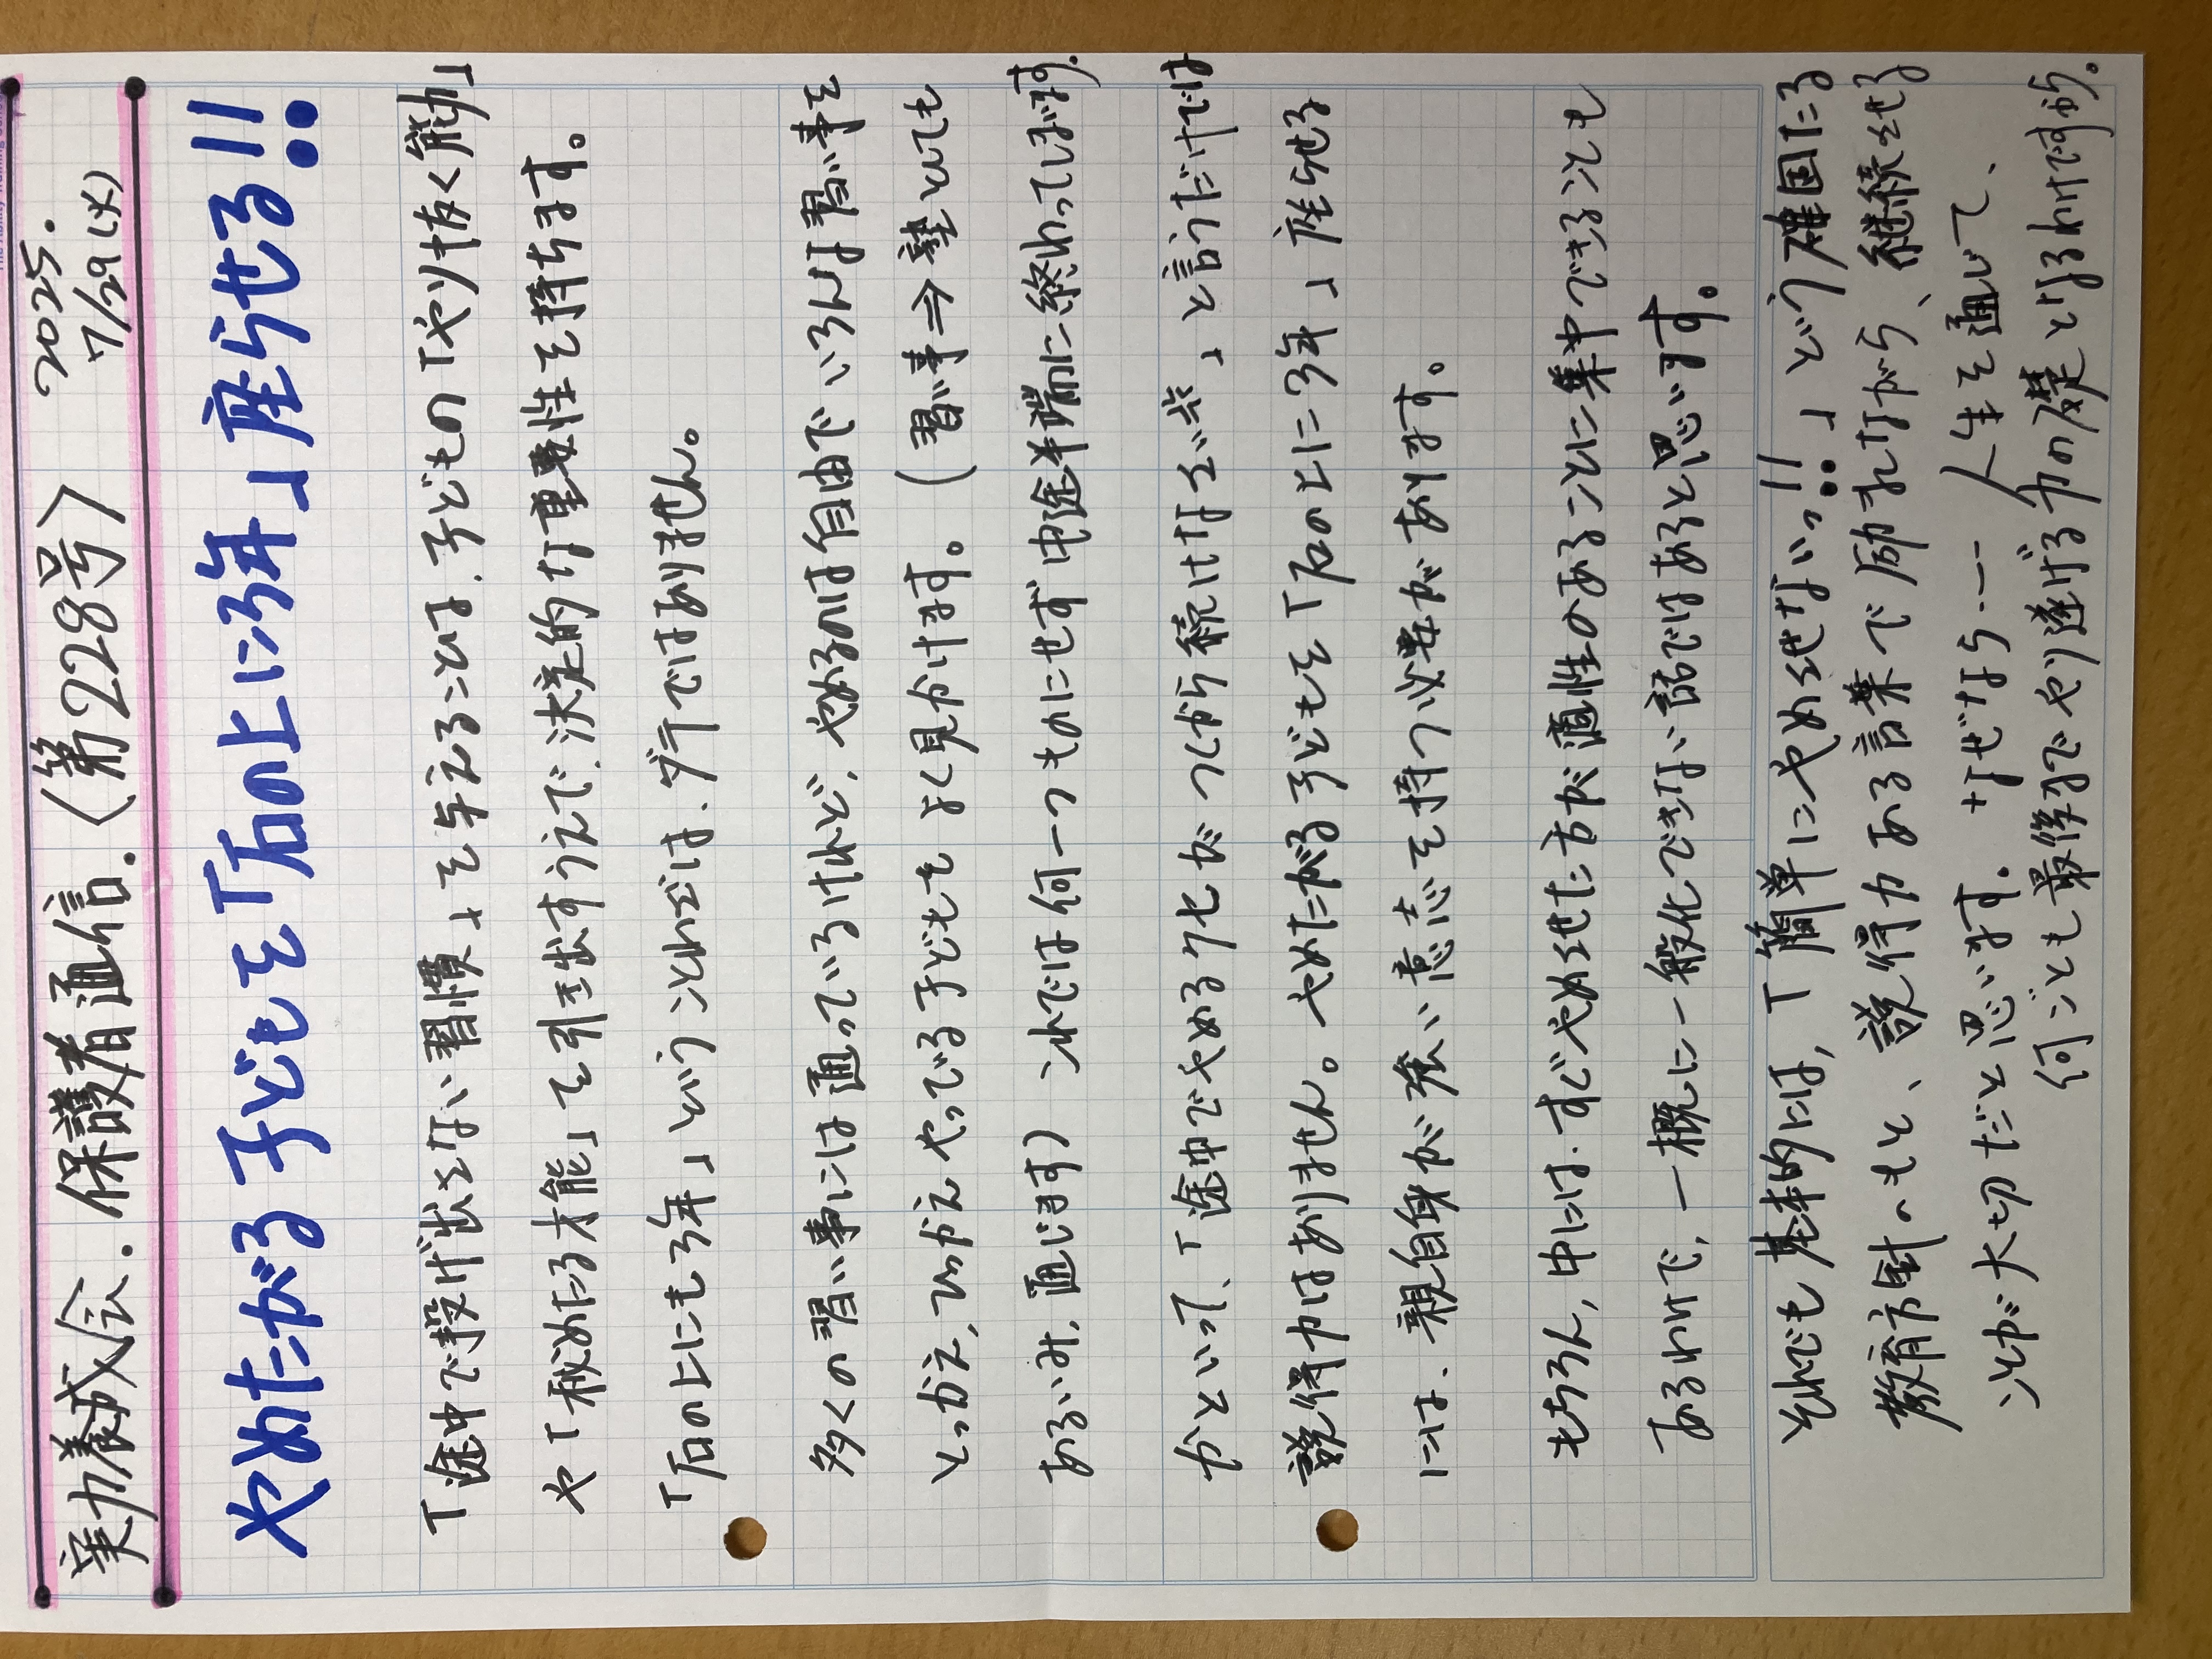 実力養成会.保護者通信.〈第228号〉 2025.
7/29(火)
やめたがる子どもを「石の上に3年」座らせる!!
「途中で投げ出さない習慣」を与えることは、子どもの「やり抜く能力」
や「秘めたる才能」を引き出すうえで、決定的な重要性を持ちます。
「石の上にも3年」ということわざは、ダテではありません。
多くの習い事には通っているけれど、やめるのは自由で、いろんな習い事を
とっかえ、ひっかえやってる子どもをよく見かけます。(習い事⇒塾としても
あるいみ、通じます) これでは何一つものにせず中途半端に終わってしまいます。
かといって、「途中でやめるクセがつくから続けなさい」と言うだけでは
説得力はありません。やめたがる子どもを「石の上に3年」座らせる
には、親自身が強い意志を持つ必要があります。
もちろん、中には、すぐやめさせた方が適性のあることに集中できることも
あるわけで、一概に一般化できない話ではあると思います。
それでも基本的には、「簡単にやめさせないっ!!」という確固たる
教育方針のもと、説得力ある言葉で励ましながら、継続させる
ことが大切だと思います。なぜなら… 人生を通して、
何ごとも最後までやり遂げる力の礎となるわけですから。